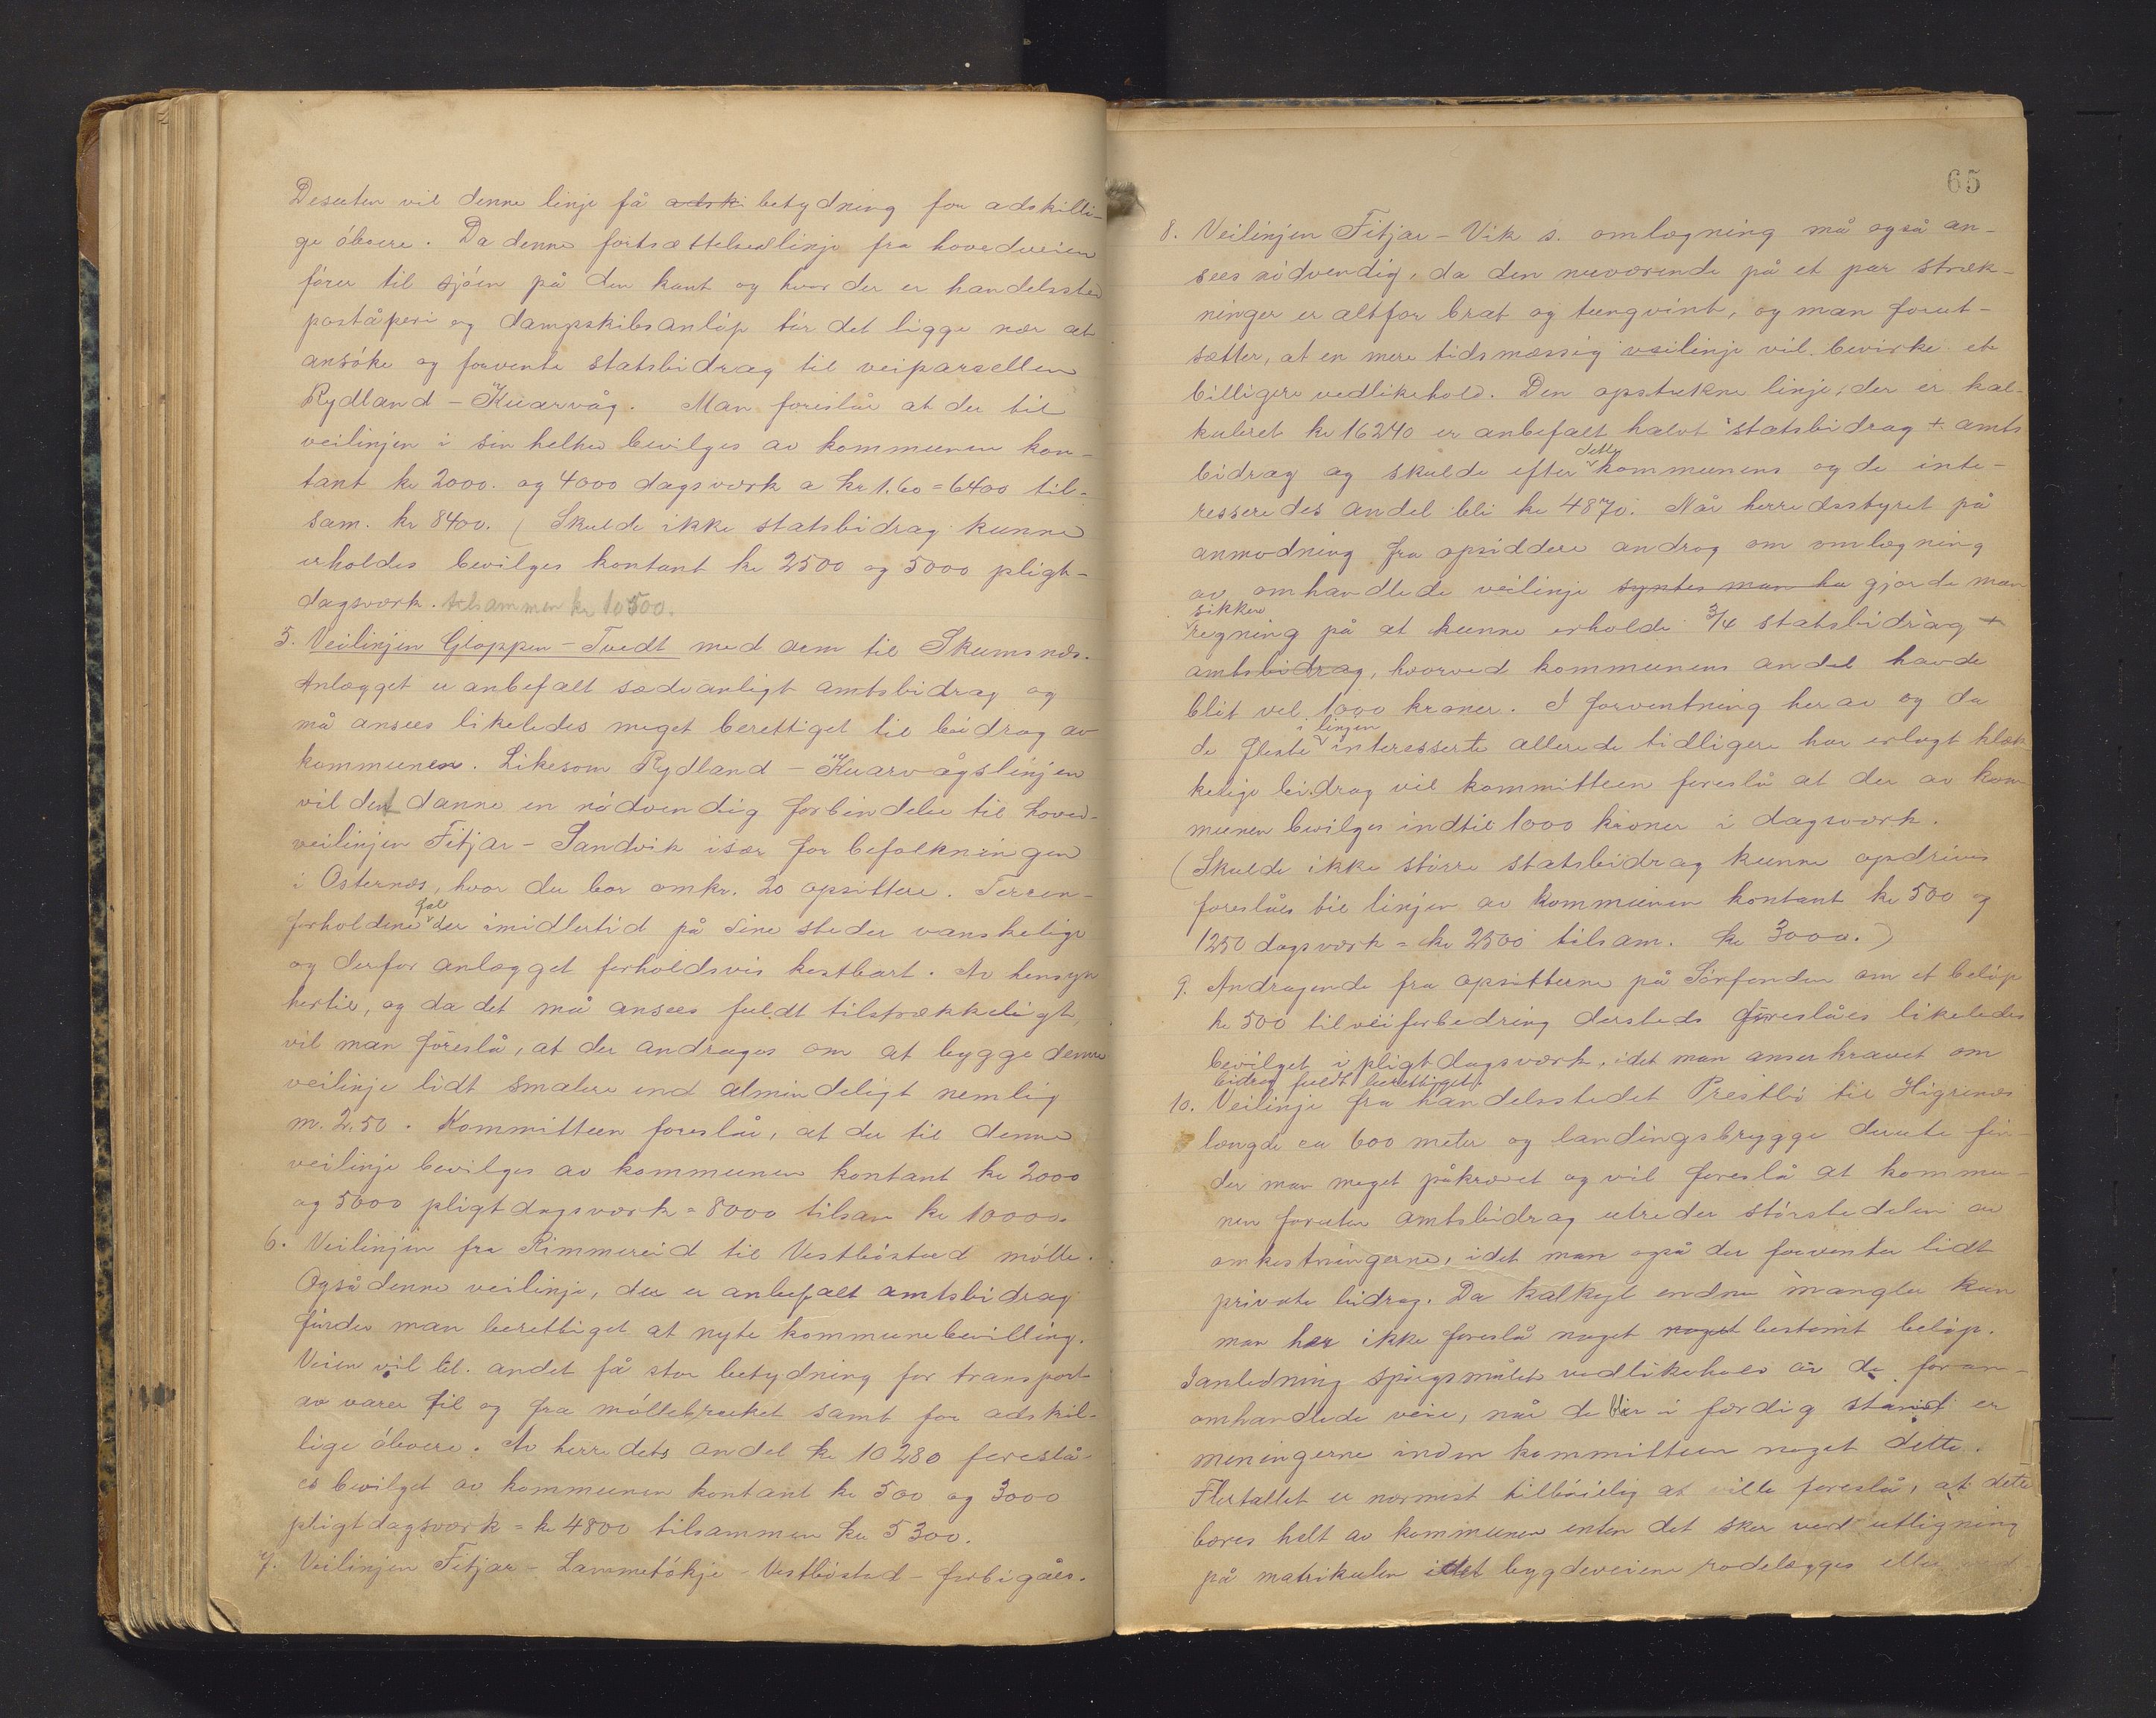 Desuten vil denne linje få adski betydning for adskilli-
ge óboere. Da denne fortsættelseslinje fra hovedveien
fórer til sjóen på den kant og hvor der er handelssted
poståperi og dampskibsanlóp tór det ligge nær at
ansóke og forvente statsbidrag til veiparsellen
Rydland - Kuarvåg. Man foreslår at der til
veilinjen i sin helhed bevilges av kommunen kon-
tant kr 2000. og 4000 dagsverk a kr 1.60 = 6400 til-
sam. kr 8400. (Skulde ikke statsbidrag kunne
erholdes bevilges kontant kr 2500 og 5000 pligt-
dagsverk. tilsammen kr 10500.
5. Veilinjen Gloppen - Tvedt med arm til Skumsnæs.
Anlægget er anbefalt sædvanligt amtsbidrag og
må ansees likeledes meget berettiget til bidrag av
kommunen. Likesom Rydland - Kuarvågslinjen
vil den danne en nódvendig forbindelse til hoved-
veilinjen Fitjar - Sandvik især for befolkningen
i Osternæs, hvor der bor omkr. 20 opsittere. Terræn-
forholdene fal der imidlertid på sine steder vanskelige
og derfor anlægget forholdsvis kostbart. Av hensyn
hertil, og da det må ansees fuldt tilstrækkeligt,
vil man foreslå, at der andrages om at bygge denne
veilinje lidt smalere end almindeligt nemlig
m. 2,50. Kommitteen foreslår, at der til denne
veilinje bevilges av kommunen kontant kr 2000
og 5000 pligtdagsværk = 8000 tilsam kr 10000.
6. Veilinjen fra Rimmereid til Vestbóstad mólle.
Også denne veilinje, der er anbefalt amtsbidrag
finder man berettiget at nyte kommunebevilling.
Veien vil bl. andet få stor betydning for transport
av varer til og fra móllebruket samt for adskil-
lige óboere. Av herredets andel kr 10280 foreslå-
es bevilget av kommunen kontant kr 500 og 3000
pligtdagsværk = kr 4800 tilsammen kr 5300.
7. Veilinjen Fitjar - Lammetókje - Vestbóstad - forbigåes.
65
8. Veilinjen Fitjar - Vik s. omlægning må også an-
sees nódvendig, da den nuværende på et par stræk-
ninger er altfor brat og tungvint, og man forut-
sætter, at en mere tidsmæssig veilinje vil bevirke et
billigere vedlikehold. Den opstukne linje, der er kal-
kuleret kr 16240 er anbefalt halvt statsbidrag + amts
bidrag og skulde efter dette kommunens og de inte-
resseredes andel bli kr 4870. Når herredsstyret på
anmodning fra opsiddere androg om omlægning
av omhandlede veilinje syntes man ha gjorde man
sikker regning på at kunne erholde 3/4 statsbidrag +
amtsbidrag, hvorved kommunens andel havde
blit vel 1000 kroner. I forventning herav og da
de fleste i linjen interesserte allerede tidligere har erlagt klæk
kelige bidrag vil kommitteen foreslå at der av kom
munen bevilges indtil 1000 kroner i dagsverk.
(Skulde ikke stórre statsbidrag kunne opdrives
foreslåes til linjen av kommunen kontant kr 500 og
1250 dagsverk = kr 2500 tilsam. kr 3000.)
9. Andragende fra opsitterne på Sórfonden om et belóp
kr 500 til veiforbedring dersteds foreslåes likeledes
bevilget i pligtdagsværk, idet man anser kravet om
bidrag fuldt berettiget.
10. Veilinje fra handelsstedet Prestbó til Higrenæs
længde ca 600 meter og landingsbrygge derute fin-
der man meget påkrævet og vil foreslå at kommu-
nen foruten amtsbidrag utreder stórstedelen av
omkostningerne, idet man også der forventer lidt
private bidrag. Da kalkyle endnu mangler kan
man her ikke foreslå noget noget bestemt belóp.
I anledning spórgsmålet vedlikehold av de foran-
omhandlede veie, når de blir i færdig stand er
meningerne inden kommitteen noget delte.
Flertallet er nærmest tilbóielig at ville foreslå, at dette
bæres helt av kommunen enten det sker ved utligning
på matrikulen idet bygdeveiene rodelægges eller